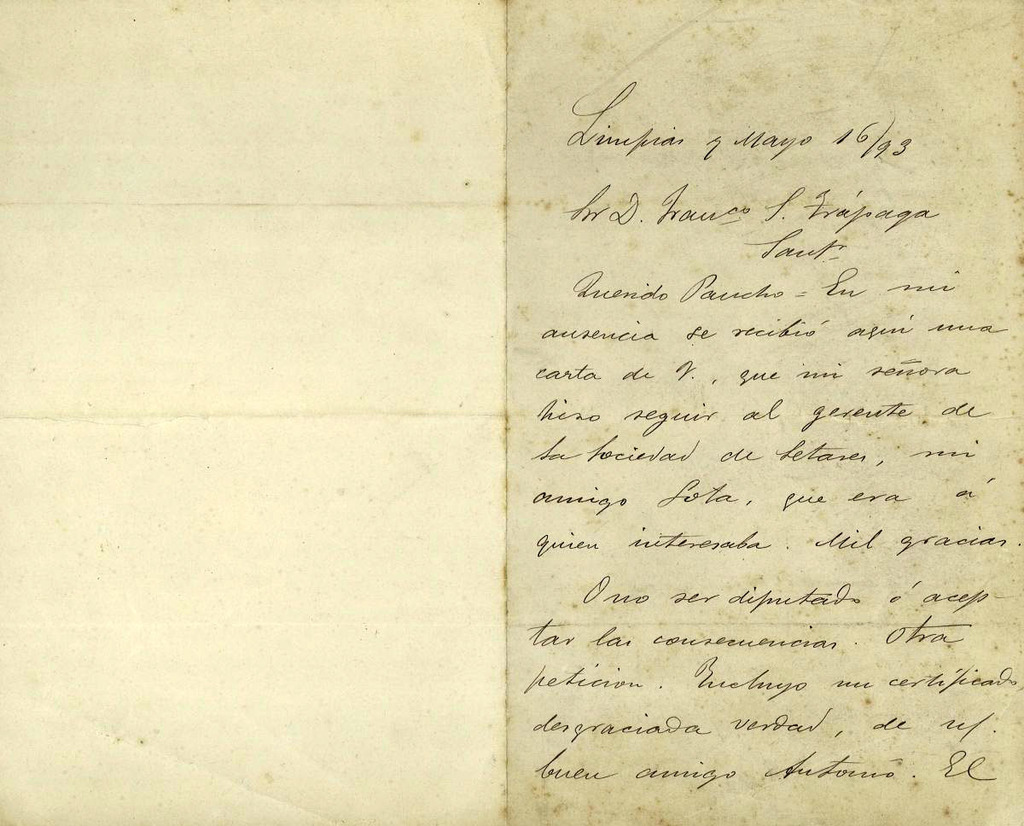 Limpias y Mayo 16/93
Sr D. Franco S. Trápaga
Sant.
Querido Pancho = En mi
ausencia se recibió aquí una
carta de V., que mi señora
hizo seguir al gerente de
la Sociedad de Setares, mi
amigo Sota, que era á
quien interesaba. Mil gracias.
O no ser diputado ó acep-
tar las consecuencias. Otra
peticion. Incluyo un certificado,
desgraciada verdad, de
buen amigo Antonio. El